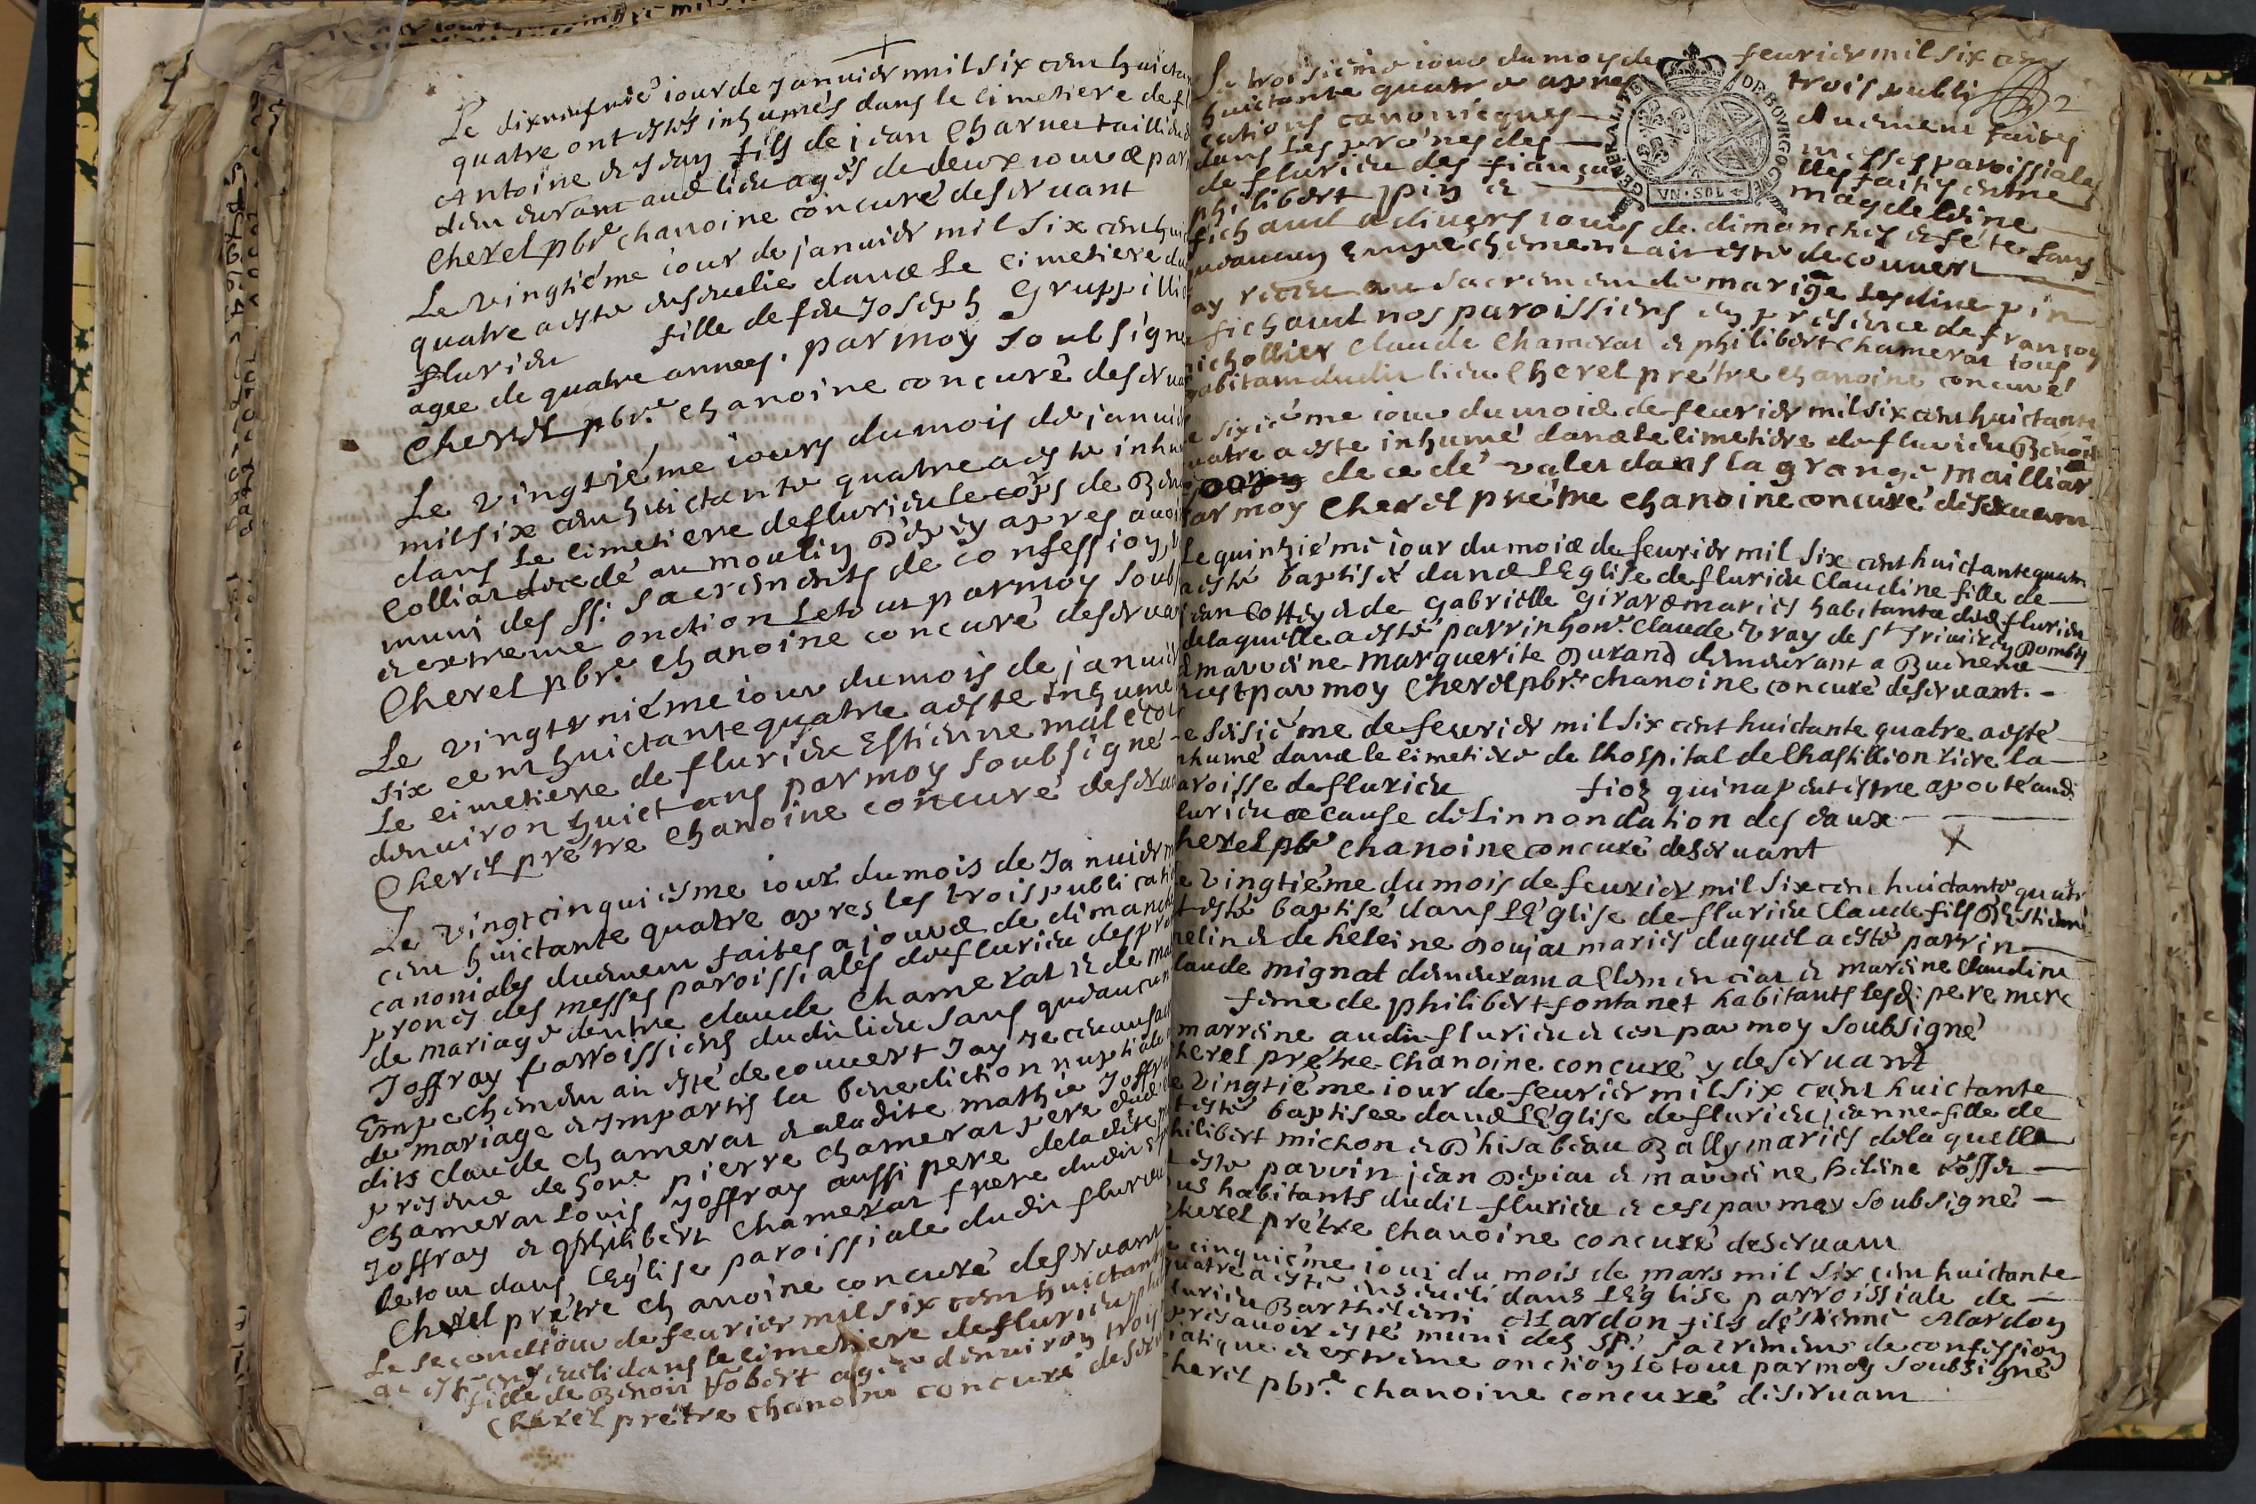 Le dixneufviè iour de Januier mil six cen huicta
quatre ont estés inhumés dans le cimetiere de fl
Antoine et Jean fils de jean Charnet
demeurant aud lieu agés de deux iours par
Cherel pbre chanoine concuré deseruant
Le vingtiéme iour de januier mil six cen hui
quatre a esté enseuelie dans le cimetiere du
flurieu fille de feu Joseph Gruppilli
agee de quatre annees. par moy soubsigne
Cherel pbre. chanoine concuré deserua
Le vingtiéme iours du mois de januie
mil six cen huictante quatre a esté inhu
dans le cimetiere de flurieu le corps de Ben
Colliar decedé au moulin apres auoi
muni des SS: sacrements de confession
et extreme onction le tout par moy soub
Cherel pbre. chanoine concuré deserua
Le vingt uniéme iour du mois de januie
six cent huictante quatre a este inhume
Le cimetiere de flurieu Estienne
denuiron huict ans par moy soubsigné
Cherel prétre chanoine concuré deserua
Le vingtcinquiesme iour du mois de Januier m
cen huictante quatre apres les trois publicati
canoniales duement faites a jours de dimanch
prones des messes paroissiales de flurieu des pro
de mariage dentre claude Chamerat et de ma
Joffray parroissiens dudit lieu sans qudaucun
Empechement ait esté decouuert Jay
de mariage et Impartis la benediction nuptiale
dits claude chamerat et a ladite mathie Joffra
presence de honr pierre chamerat pere dud
Chamerat Louis Joffray aussi pere de ladite
Joffray et philibert Chamerat frere dudit
le tout dans l'Eglise paroissiale dudit flurieu
Cherel prétre chanoine concuré deseruant
Le second iour de feurier mil six cen huictant
a esté enseueli dans le cimetiere de flurieu phi
fille de Benoit agée denuiron trois
Cherel prétre chanoine concuré deser
Le troisiéme iour du moys de feurier mil six cen
huictante quatre apres trois publi
cations canonicques duement faites
dans les prones des messes paroissiales
de flurieu des fiançailles faites entre
philibert pin et magdeleine
fichaud a diuers iours de dimanches et féte sans
qudaucun Empechement ait esté decouuert
ay receu au sacrement de mariage lesdits pin
fichaud nos paroissiens en presence de francoy
nichollier Claude Chamerat et philibert Chamerat tous
habitant dudit lieu Cherel prétre chanoine concuré
e sixiéme iour du mois de feurier mil six cen huictante
uatre a este inhumé dans le cimetiere de flurieu Benoit
decedé valet dans la grange mailliar
par moy Cherel prétre chanoine concuré deseruant
Le quinziéme iour du mois de feurier mil six cent huictante quatre
a esté baptisée dans l'Eglise de flurieu Claudine fille de
jean Cottey et de Gabrielle Girard mariés habitants de flurieu
de laquelle a esté parrin honr. Claude Vray de St Triuier en Dombes
et marreine marguerite Durand demeurant a
et cest par moy Cherel pbre chanoine concuré deseruant.
e seisiéme de feurier mil six cent huictante quatre a esté
nhumé dans le cimetiere de lhospital de Chastillion riere la
aroisse de flurieu fion qui na peut estre aporté aud:
lurieu a cause de linnondation des eaux
herel pbre chanoine concuré deseruant
e vingtiéme du mois de feurier mil six cen huictante quatr
esté baptisé dans l'Eglise de flurieu Claude fils d'Estienne
elin et de heleine Doujat mariés duquel a esté parrin
laude mignat demeurant a et mareine Claudine
feme de philibert fontanet habitants lesd: pere mere
marreine audit flurieu et cest par moy soubsigné
herel prétre chanoine concuré y deseruant
e vingtiéme iour de feurier mil six cent huictante
esté baptisee dans l'Eglise de flurieu jeanne fille de
hilibert michon et d'hisabeau Bally mariés de la quelle
esté parrin jean et mareine heleine
us habitants dudit flurieu et cest par moy soubsigné
cherel prétre chanoine concuré deseruant
e cinquiéme iour du mois de mars mil six cen huictante
uatre a esté enseueli dans l'Eglise parroissiale de
lurieu Barthelemi Alardon fils d'estienne Alardon
pres auoir esté muni des SS. sacrements de confession
iatique et extreme onction le tout par moy soubsigné
cherel pbre. chanoine concuré deseruant
GENERALITE DE BOVRGOGNE
VN · SOL